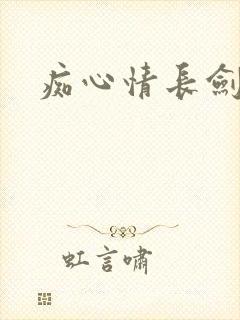 痴心情長劍
虹言嘯